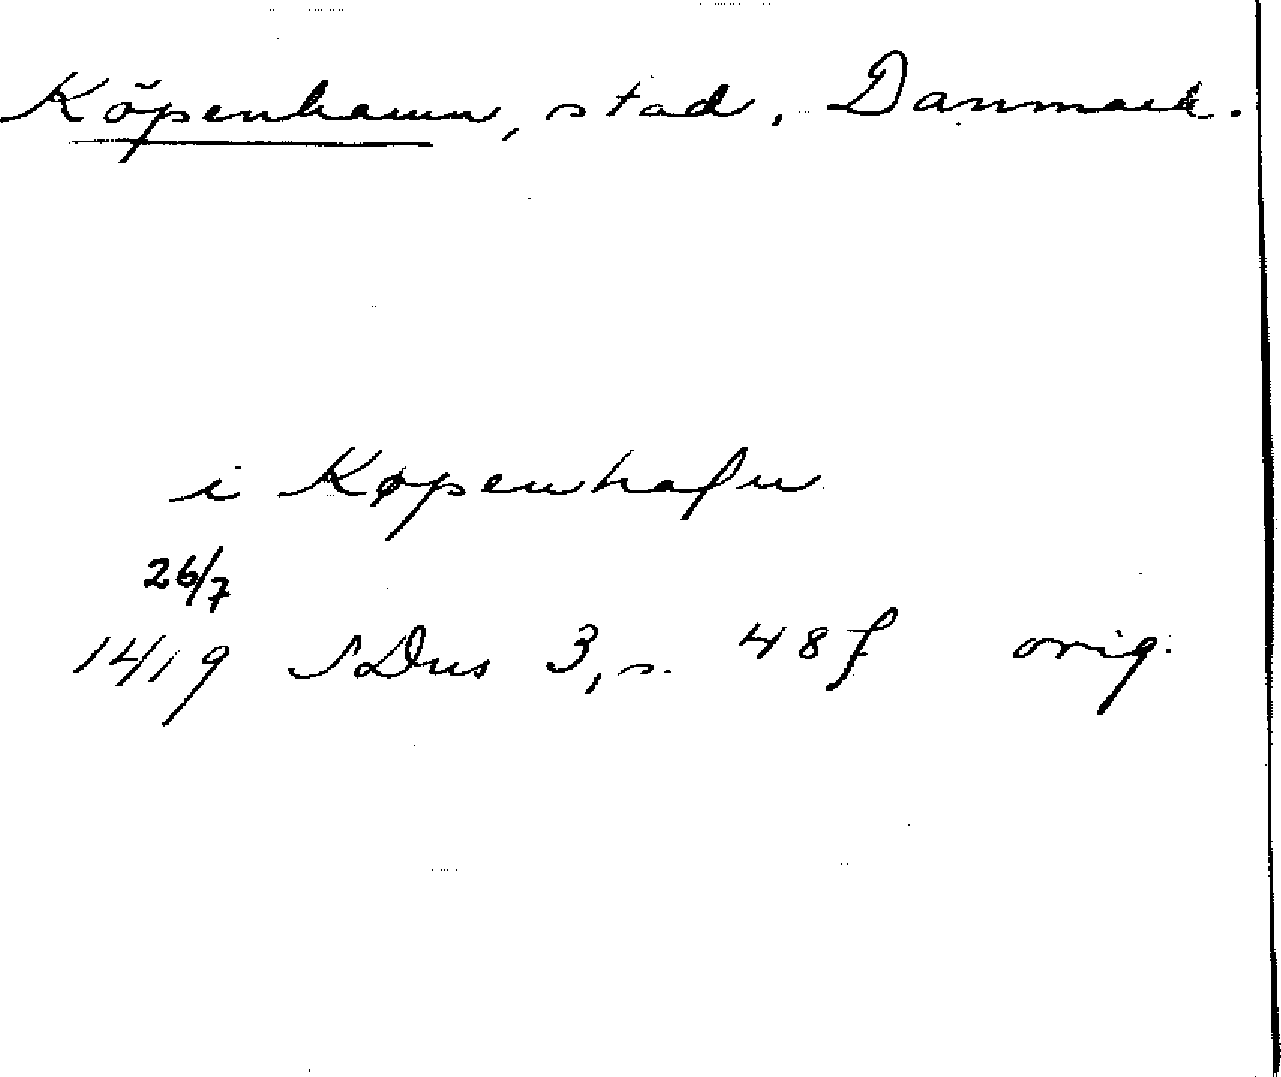 Köpenhamn, stad, Danmark.
i Køpenhafn
26/7
1419 SDns 3, s. 48 f orig.